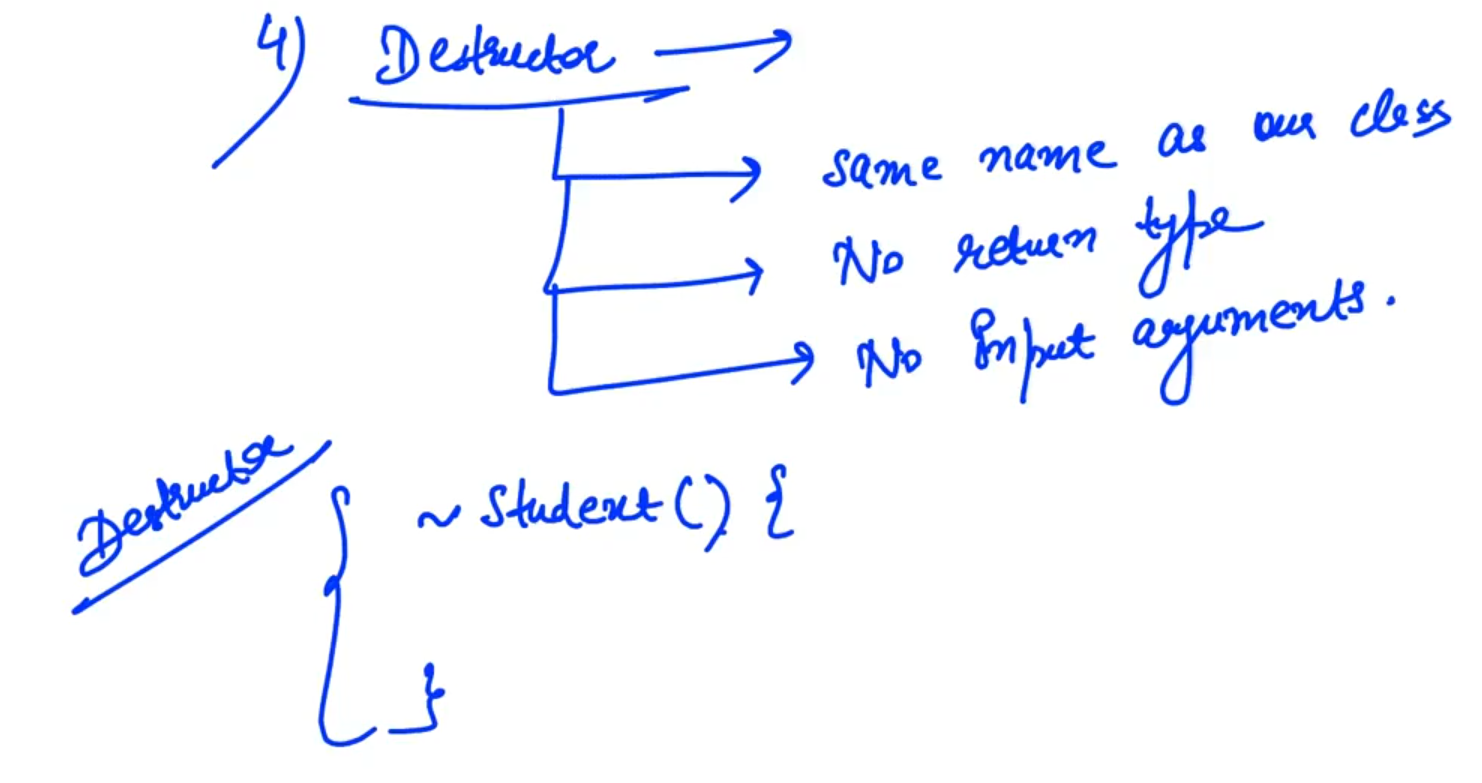 4) Destructor →
→ same name as our class
→ No return type
→ No Input arguments.
Destructor
~ Student() {
}